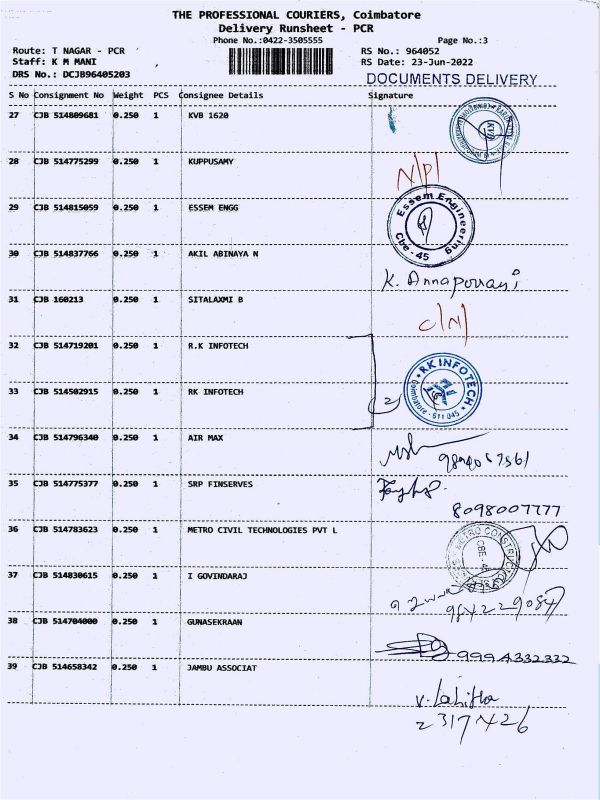 THE PROFESSIONAL COURIERS, Coimbatore
Delivery Runsheet - PCR
Phone No.:0422-3505555
Page No.:3
Route: T NAGAR - PCR
RS No.: 964052
Staff: K M MANI
RS Date: 23-Jun-2022
DRS No.: DCJB96405203
DOCUMENTS DELIVERY
S No Consignment No Weight PCS Consignee Details Signature
27 CJB 514809681 0.250 1 KVB 1620
KVB
28 CJB 514775299 0.250 1 KUPPUSAMY
N/P/
29 CJB 514815059 0.250 1 ESSEM ENGG
Essem Engineering
Cbe - 45
30 CJB 514837766 0.250 1 AKIL ABINAYA N
K. Annapoorani
31 CJB 160213 0.250 1 SITALAXMI B
C/N/
32 CJB 514719201 0.250 1 R.K INFOTECH
33 CJB 514502915 0.250 1 RK INFOTECH
2
RK INFOTECH
Coimbatore - 611 045
34 CJB 514796340 0.250 1 AIR MAX
35 CJB 514775377 0.250 1 SRP FINSERVES
8098007777
36 CJB 514783623 0.250 1 METRO CIVIL TECHNOLOGIES PVT L
METRO CONSTRUCTION
37 CJB 514830615 0.250 1 I GOVINDARAJ
38 CJB 514704000 0.250 1 GUNASEKRAAN
9994332332
39 CJB 514658342 0.250 1 JAMBU ASSOCIAT
V. Lalitha
2317426